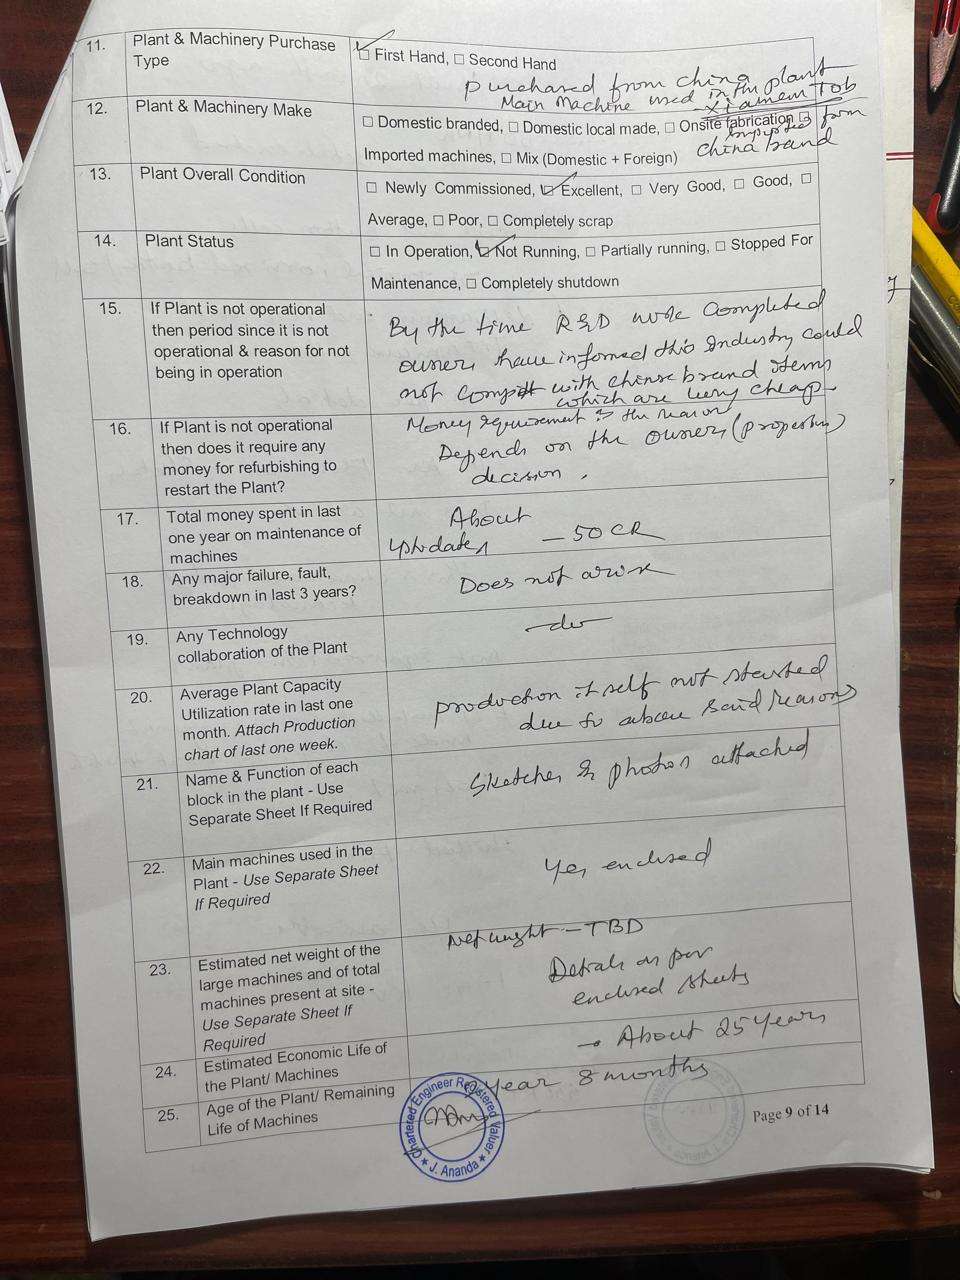 11. Plant & Machinery Purchase Type
☑ First Hand, ☐ Second Hand
Purchased from China
Main Machine used in the plant
Xiamen TOB
12. Plant & Machinery Make
☐ Domestic branded, ☐ Domestic local made, ☐ Onsite fabrication ☐
Imported machines, ☐ Mix (Domestic + Foreign)
Imported from
China band
13. Plant Overall Condition
☐ Newly Commissioned, ☑ Excellent, ☐ Very Good, ☐ Good, ☐
Average, ☐ Poor, ☐ Completely scrap
14. Plant Status
☐ In Operation, ☑ Not Running, ☐ Partially running, ☐ Stopped For
Maintenance, ☐ Completely shutdown
15. If Plant is not operational
then period since it is not
operational & reason for not
being in operation
By the time R&D work completed
owners have informed this Industry could
not with chinse brand items
which are very cheap.
16. If Plant is not operational
then does it require any
money for refurbishing to
restart the Plant?
Money requirement is the reason
Depends on the owners
decision.
17. Total money spent in last
one year on maintenance of
machines
About
50 CR
18. Any major failure, fault,
breakdown in last 3 years?
Does not arise
19. Any Technology
collaboration of the Plant
-do-
20. Average Plant Capacity
Utilization rate in last one
month. Attach Production
chart of last one week.
production itself not started
due to above said reasons
21. Name & Function of each
block in the plant - Use
Separate Sheet If Required
Sketches & photos attached
22. Main machines used in the
Plant - Use Separate Sheet
If Required
Yes, enclosed
23. Estimated net weight of the
large machines and of total
machines present at site -
Use Separate Sheet If
Required
Net weight - TBD
Details as per
enclosed sheets
24. Estimated Economic Life of
the Plant/ Machines
→ About 25 years
25. Age of the Plant/ Remaining
Life of Machines
year 8 months
Chartered Engineer Registered Valuer
★ J. Ananda ★
Page 9 of 14